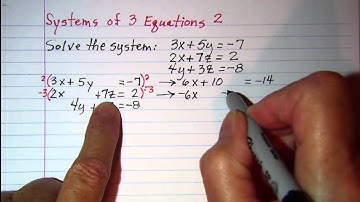 Systems of 3 Equations 2
Solve the system: 3x + 5y = -7
2x + 7z = 2
4y + 3z = -8
2(3x + 5y = -7)2 → 6x + 10 = -14
-3(2x +7z = 2)-3 → -6x
4y + = -8